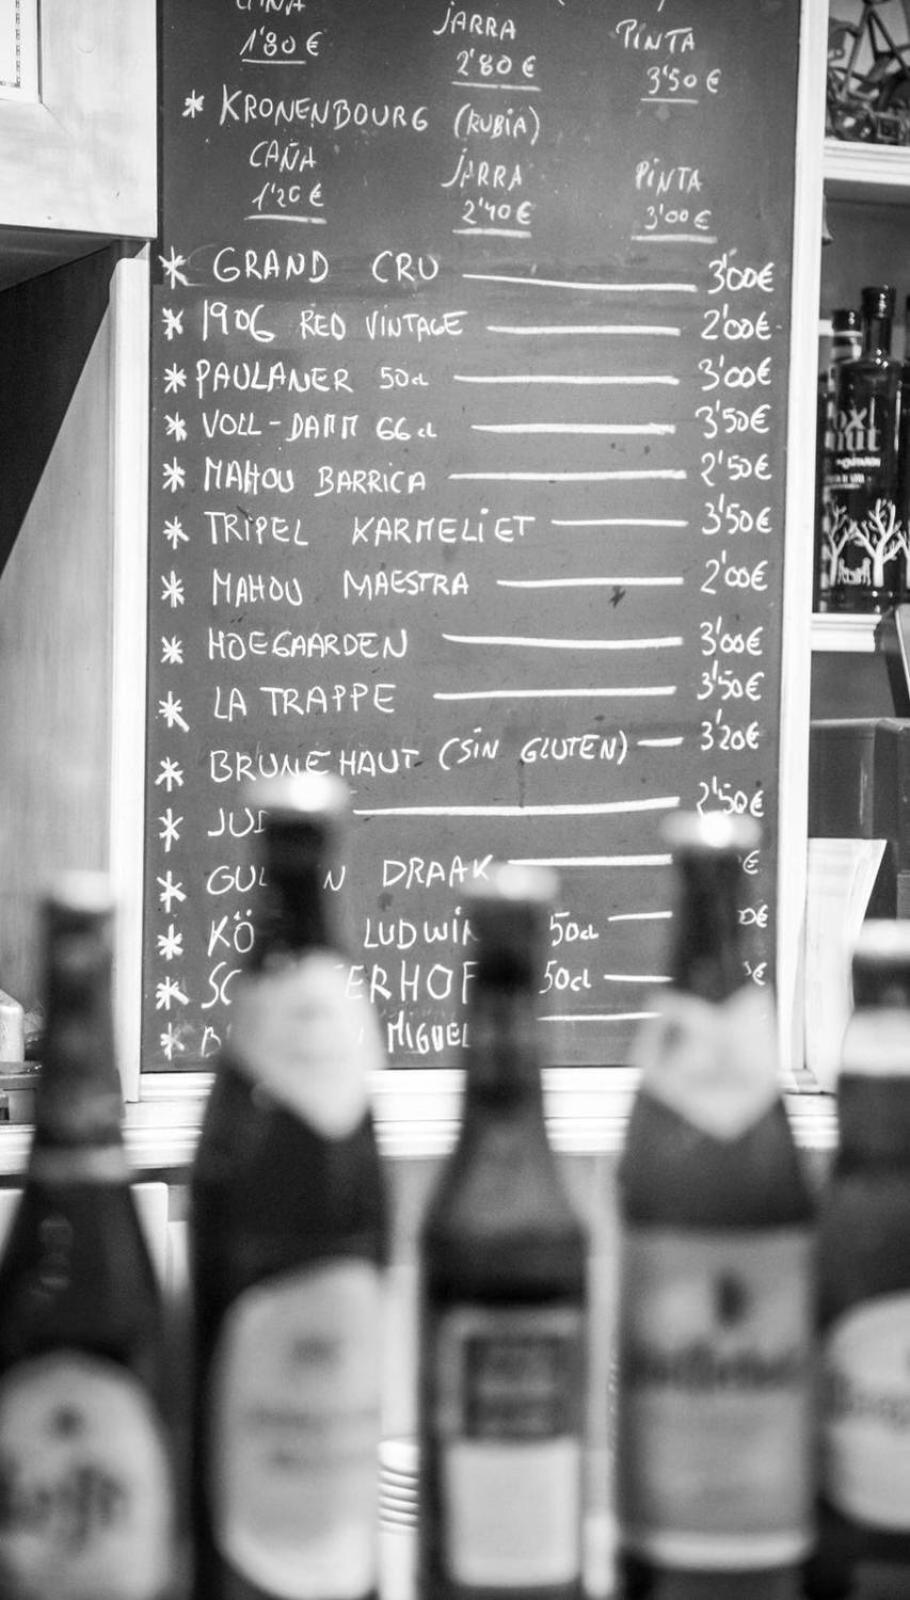 JARRA PINTA
1'80 € 2'80 € 3'50 €
* KRONENBOURG (RUBIA)
CAÑA JARRA PINTA
1'20 € 2'40 € 3'00 €
* GRAND CRU 3'00€
* 1906 RED VINTAGE 2'00€
* PAULANER 50cl 3'00€
* VOLL-DAMM 66cl 3'50€
* MAHOU BARRICA 2'50€
* TRIPEL KARMELIET 3'50€
* MAHOU MAESTRA 2'00€
* HOEGAARDEN 3'00€
* LA TRAPPE 3'50€
* BRUNEHAUT (SIN GLUTEN) 3'20€
* 2'50€
* DRAAK €
* 50cl 0€
* 50cl €
* MIGUEL